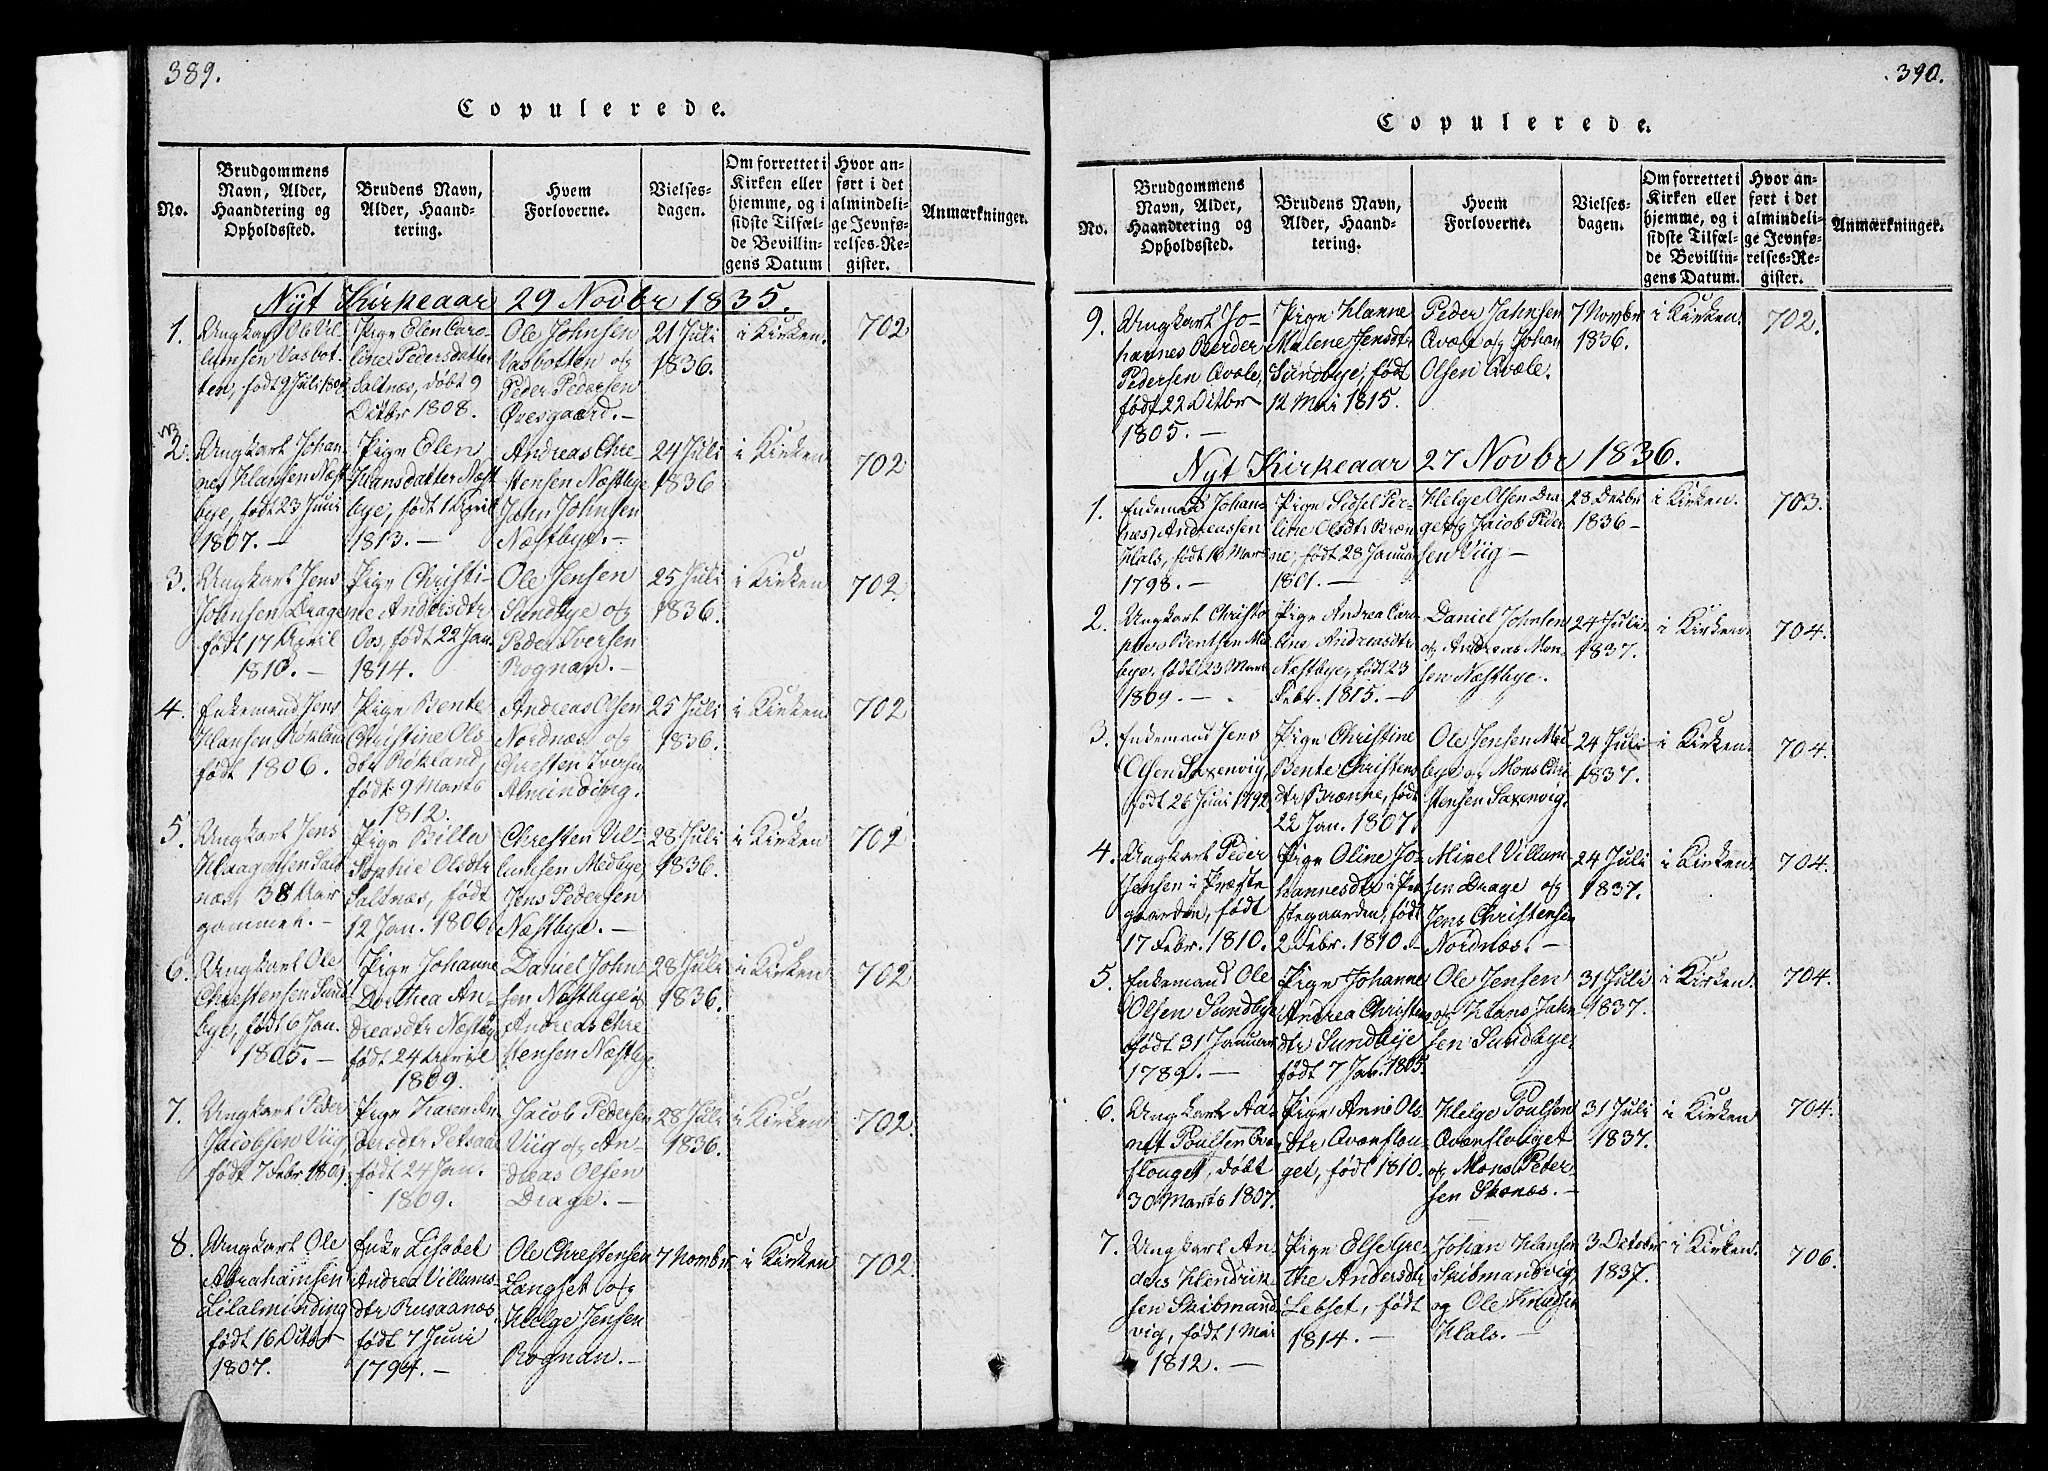 389.
Copulerede.
No.
Brudgommens
Navn, Alder,
Haandtering og
Opholdssted.
Brudens Navn,
Alder, Haand-
tering.
Hvem
Forloverne.
Vielses-
dagen.
Om forrettet i
Kirken eller
hjemme, og i
sidste Tilfæl-
de Bevillin-
gens Datum
Hvor an-
ført i det
almindeli-
ge Jevnfø-
relses-Re-
gister.
Anmærkninger.
Nyt Kirkeaar 29 Novbr 1835.
1.
Ungkarl Ole Vil-
lumsen Vasbot-
ten, født 9 Juli
Pige Elen Caro-
line Pedersdatter
Saltnæs, døbt 9
Octbr 1808.
Ole Johnsen
Vasbotten og
Peder Pedersen
Øvesgaard.-
21 Juli
1836.
i Kirken.
702
2.
Ungkarl Johan-
nes Hansen Næst
bye, født 23 Juni
1807.-
Pige Elen
Hansdatter Næst
bye, født 1 April
1813.-
Andreas Chre
stensen Næstbye
John Johnsen
Næstbye.-
24 Juli
1836
i Kirken
702
3.
Ungkarl Jens
Johnsen Drage
født 17 April
1810.-
Pige Christi-
ne Andersdtr
Oos, født 22 Jan.
1814.
Ole Jensen
Sundbye og
Peder Iversen
Rognan.-
25 Juli
1836.
i Kirken
702.
4.
Enkemand Jens
Hansen
født 1806.
Pige Bente
Christine Ols
dtr Røkland,
født 9 Marts
1812.
Andreas Olsen
Nordnæs og
Chresten Iversen
Alminding.
25 Juli
1836.
i Kirken
702
5.
Ungkarl Jens
Haagensen Salt
næs, 38 Aar
gammel.-
Pige Billa
Sophie Olsdtr
Saltnæs, født
12 Jan. 1806.
Chresten Vil-
lumsen Medbye,
Jens Pedersen
Næstbye.-
28 Juli
1836.
i Kirken
702
6.
Ungkarl Ole
Chrestensen Sund
bye, født 6 Jan.
1805.-
Pige Johanne
Dorthea An-
dreasdtr Næstbye
født 24 April
1809.
Daniel John-
sen Næstbye og
Andreas Chre
stensen Næstbye.
28 Juli
1836.
i Kirken
702
7.
Ungkarl Peder
Jacobsen Viig,
født 7 Febr. 1809.
Pige Karen An
dersdtr Setsaae
født 24 Jan.
1809.
Jacob Pedersen
Viig og An-
dreas Olsen
Drage.-
28 Juli
1836.
i Kirken.
702.
8.
Ungkarl Ole
Abrahamsen
Lilalminding
født 16 Octbr
1807.
Enke Lisabet
Andrea Villums-
dtr Rusaanæs.
født 7 Juni
1794.
Ole Chrestensen
Langset og
Helge Jensen
Rognan.-
7 Novmbr
i Kirken
702.
390.
Copulerede.
No.
Brudgommens
Navn, Alder,
Haandtering og
Opholdssted.
Brudens Navn,
Alder, Haand-
tering.
Hvem
Forloverne.
Vielses-
dagen.
Om forrettet i
Kirken eller
hjemme, og i
sidste Tilfæl-
de Bevillin-
gens Datum.
Hvor an-
ført i det
almindeli-
ge Jevnfø-
relses-Re-
gister.
Anmærkninger.
9.
Ungkarl Jo-
hannes Peder
Pedersen Qvale,
født 22 Octbr
1805.-
Pige Hanne
Malene Jensdtr
Sundbye, født
12 Mai 1815.
Peder Jahnsen
Qvæle og Johan
Olsen Qvæle.
7 Novbr
1836.
i Kirken.
702.
Nyt Kirkeaar 27 Novbr 1836.
1.
Enkemand Johan-
nes Andreassen
Hals, født 16 Mar
1798.-
Pige Sidsel Per-
line Olsdtr Bræn-
ne, født 28 Januar
1801.-
Helge Olsen Dra-
ge og Jacob Peder
sen Viig-
28 Decbr
1836-
i Kirken.
703.
2.
Ungkarl Christo-
pher Bentsen Med
bye, født 23 Mart
1809.-
Pige Andrea Caro
line Andreasdtr
Næstbye, født 23
Febr. 1815.-
Daniel Johnsen
og Andreas Mon-
sen Næstbye.
24 Juli
1837.
i Kirken
704.
3.
Enkemand Jens
Olsen Saxenvig,
født 26 Juni 1792
Pige Christine
Bente Christens
dtr Brænne, født
22 Jan. 1807.
Ole Jensen Med-
bye og Mons Chre
stensen Saxenvig.
24 Juli
1837.
i Kirken.
704.
4.
Ungkarl Peder
Jensen i Præste
gaarden, født
17 Febr. 1810.
Pige Oline Jo-
hannesdtr i Præ
stegaarden, født
2 Febr. 1810.-
Mikel Villum-
sen Drage og
Jens Christensen
Nordnæs.-
24 Juli
1837.
i Kirken.
704.
5.
Enkemand Ole
Olsen Sundbye
født 31 Januar
1789.-
Pige Johanne
Andrea Christen
dtr Sundbye
født 7 Jan. 1805.
Ole Jensen
og Hans Jahn-
sen Sundbye.
31 Juli
1837.
i Kirken.
704.
6.
Ungkarl Aa-
Poulsen Qvæn
flouget, døbt
30 Marts 1807.
Pige Anne Ols-
dtr Qvænflou-
get, født 1810.
Helge Poulsen
Qvænflouget
og Mons Peter-
sen Skonæs.-
31 Juli
1837.
i Kirken
704.
7.
Ungkarl An-
ders Hendrik
sen Skibmand
vig, født 1 Mai
1812.-
Pige Else Gre-
the Andersdtr
Lebset, født
1814.-
Johan Hansen
Skibmandvig,
og Ole Knudsen
Hals.-
3 October
1837.
i Kirken.
706.